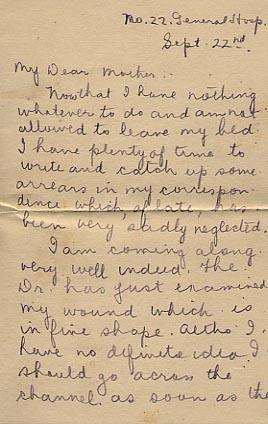 No. 22. General Hosp.
Sept 22nd.
My Dear Mother:-
Now that I have nothing
whatever to do and am not
allowed to leave my bed
I have plenty of time to
write and catch up some
arrears in my correspon-
dence which, of late, has
been very sadly neglected.
I am coming along
very well indeed. The
Dr. has just examined
my wound which is
in fine shape. Altho I
have no definite idea I
should go across the
channel as soon as the